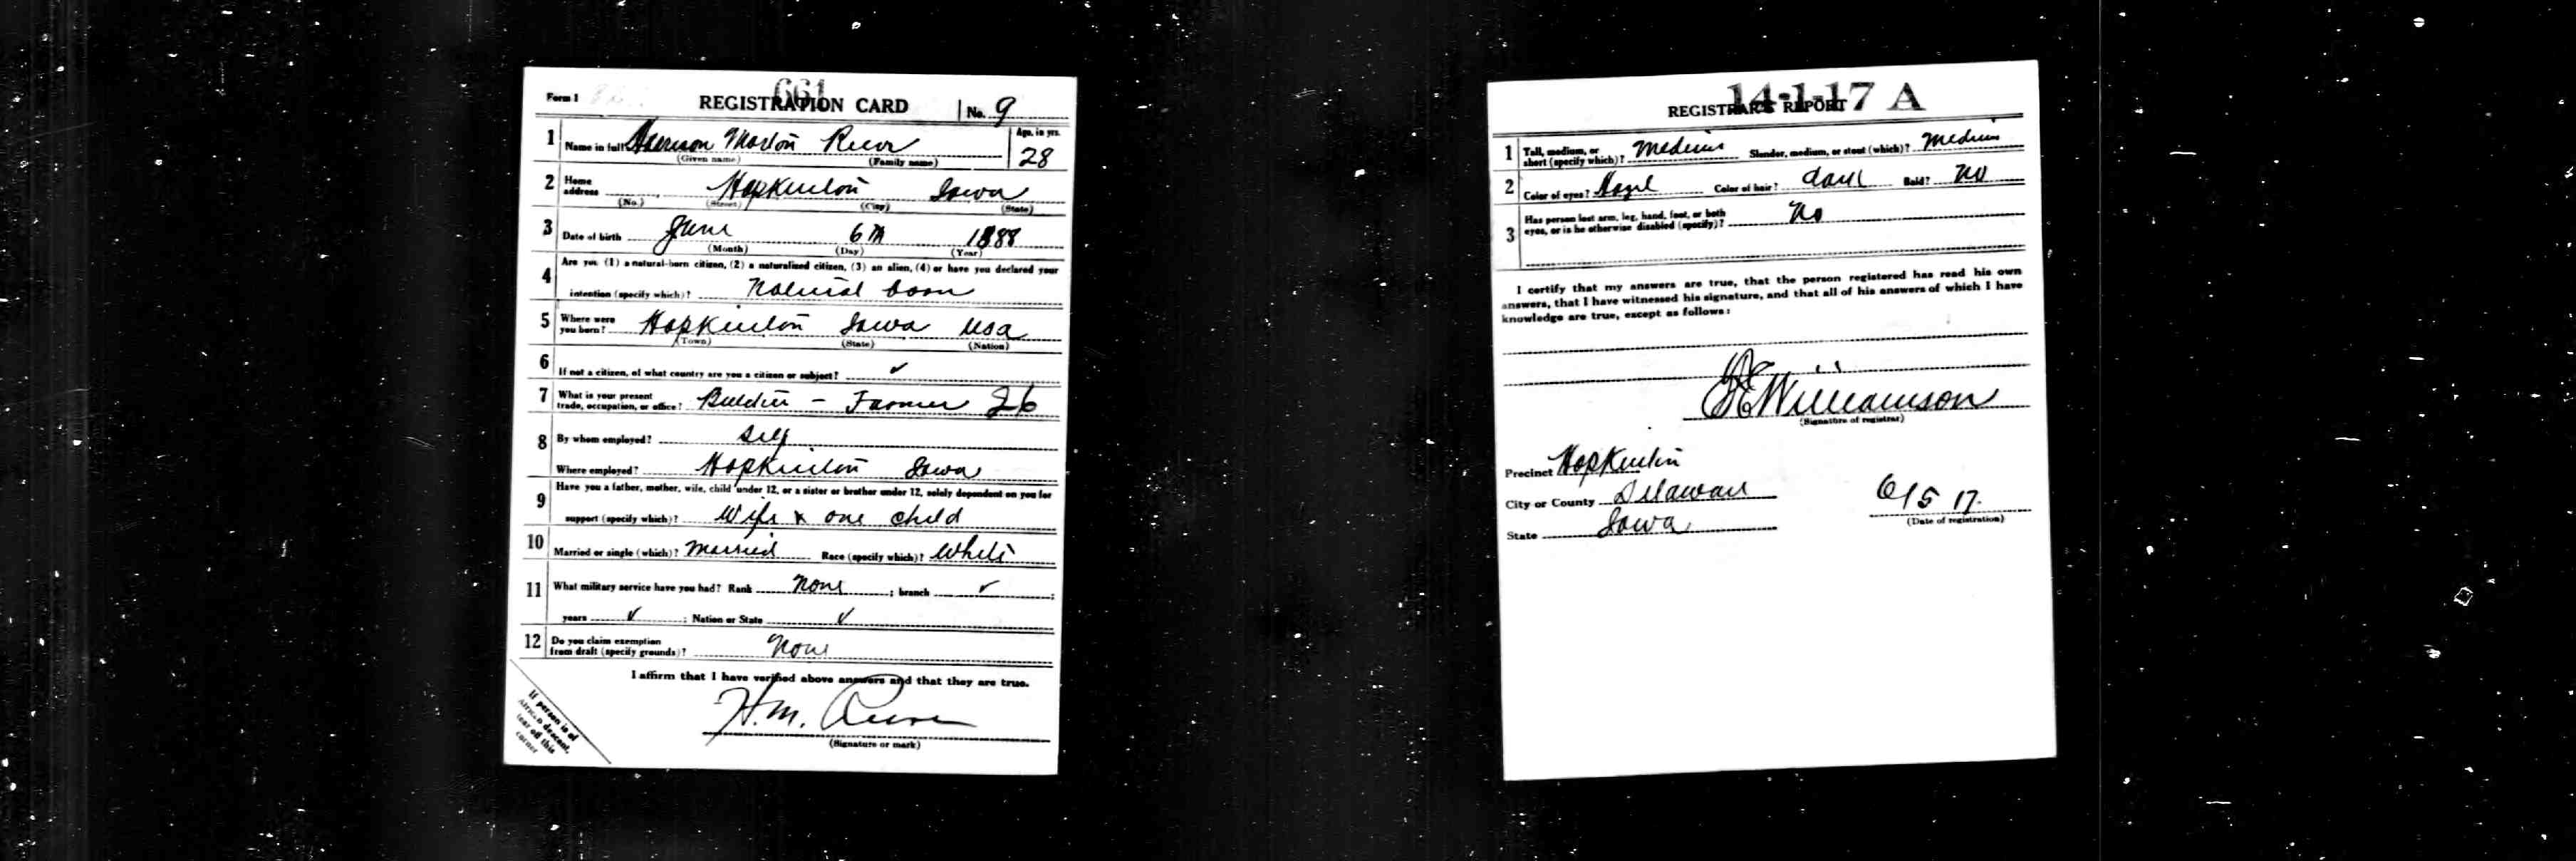 661
Form 1 REGISTRATION CARD No. 9
1 Name in full Harrison Morton Reeve Age, in yrs.
(Given name) (Family name) 28
2 Home address Hopkinton Iowa
(No.) (Street) (City) (State)
3 Date of birth June 6th 1888
(Month) (Day) (Year)
4 Are you (1) a natural-born citizen, (2) a naturalized citizen, (3) an alien, (4) or have you declared your
intention (specify which)? Natural born
5 Where were you born? Hopkinton Iowa USA
(Town) (State) (Nation)
6 If not a citizen, of what country are you a citizen or subject? ✓
7 What is your present trade, occupation, or office? Builder - Farmer 26
8 By whom employed? Self
Where employed? Hopkinton Iowa
9 Have you a father, mother, wife, child under 12, or a sister or brother under 12, solely dependent on you for
support (specify which)? Wife & one child
10 Married or single (which)? Married Race (specify which)? White
11 What military service have you had? Rank None ; branch ✓ ;
years ✓ ; Nation or State ✓
12 Do you claim exemption from draft (specify grounds)? None
I affirm that I have verified above answers and that they are true.
H. M. Reeve
(Signature or mark)
If person is of
African descent,
tear off this
corner
14-1-17 A
REGISTRAR'S REPORT
1 Tall, medium, or short (specify which)? Medium Slender, medium, or stout (which)? Medium
2 Color of eyes? Hazel Color of hair? dark Bald? No
3 Has person lost arm, leg, hand, foot, or both eyes, or is he otherwise disabled (specify)? No
I certify that my answers are true, that the person registered has read his own
answers, that I have witnessed his signature, and that all of his answers of which I have
knowledge are true, except as follows:
Williamson
(Signature of registrar)
Precinct Hopkinton
City or County Delaware
State Iowa
6/5 17.
(Date of registration)